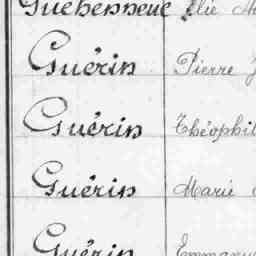 Guehenneuc Elie
Guérin Pierre
Guérin Théophil
Guérin Marie
Guérin Emmanu